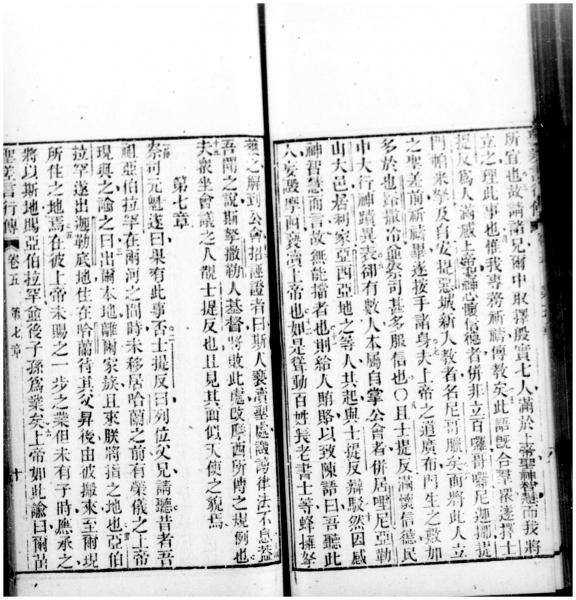 所宜也故請諸兄爾中取擇殷實七人滿於上帝聖神智慧而我將
立之理此事也惟我專務祈禱傳教矣此語既合羣眾遂擇士
提反為人滿感上帝聖神忠信德者併非立百囉哥囉尼迦挪提
門帕米拏及自安提惡城新人教者名尼哥臘矣而將此人立
之聖差前祈禱畢遂按手諸身夫上帝之道廣布門生之數如
多於也路撒冷並祭司甚多服信也〇且士提反滿懷信德民
中大行神蹟異表卻有數人本屬自掌公會者併居哩尼亞勒
山大邑基利家亞西亞地之等人其起與士提反辯駁然因感
神智慧而言故無能擋者也則給人賄賂以致陳語曰吾聽此
人妄毀摩西褻瀆上帝也如是聳動百姓長老書士等蜂擁拏
之解到公會招誣證者曰斯人褻瀆聖處譭謗律法不息蓋
吾聞之說斯拏撒勒人基督將敗此處改摩西所傳之規例也
夫眾坐會議之人觀士提反也且見其面似天使之貌焉
第七章
祭司元魁遂曰果有此事否士提反曰列位父兄請聽昔者吾
祖亞伯拉罕在兩河之間時未移居哈蘭之前有榮儀之上帝
現與之諭之曰出爾本地離爾家族且來朕將指之地也亞伯
拉罕遂出迦勒底地住在哈蘭待其父昇後由彼搬來至爾現
所住之地焉在彼上帝未賜之一步之業但未有子時應承之
將以斯地賜亞伯拉罕並後子孫為業矣上帝如此諭曰爾苗
聖差言行傳 卷五 第七章 十